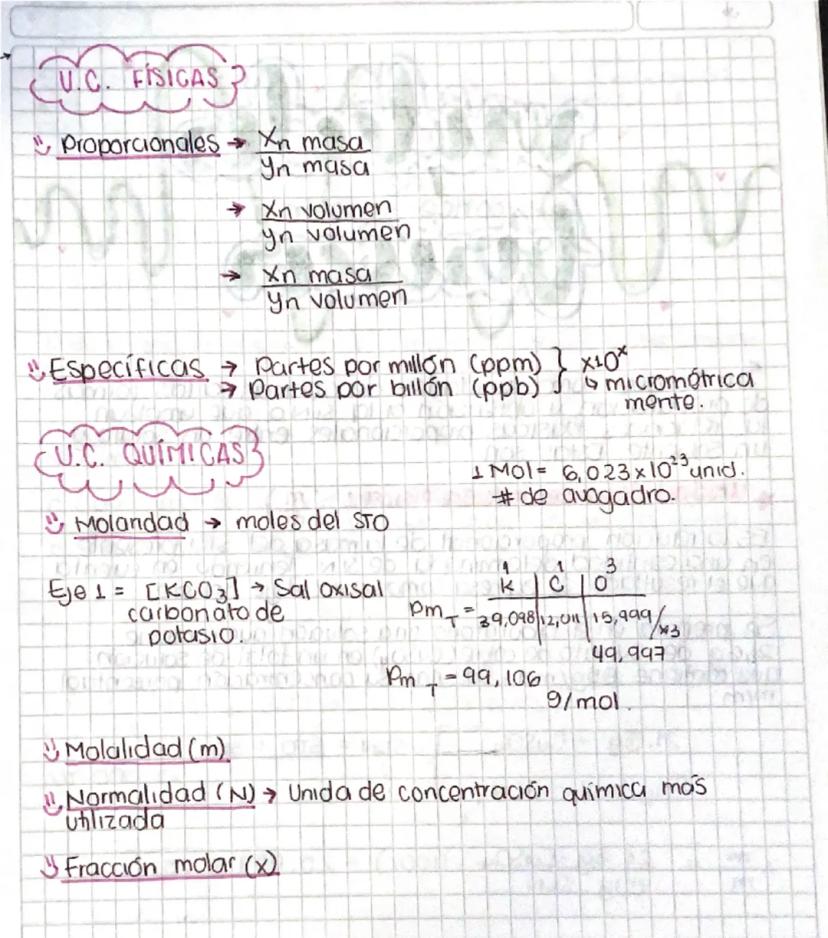 U.C. FÍSICAS
Proporcionales → Xn masa
yn masa
→ Xn volumen
yn volumen
→ Xn masa
yn volumen
Específicas → Partes por millón (ppm) } x10ˣ
→ Partes por billón (ppb) } ↳ micrométrica
mente.
U.C. QUÍMICAS
1 Mol = 6,023 x 10²³ unid.
# de avogadro.
Molaridad → moles del STO
Eje 1 = [KCO₃] → Sal oxisal
carbonato de
potasio.
1 1 3
K | C | O
Pm T = 39,098 | 12,011 | 15,999 / x3
49,997
Pm T = 99,106
g/mol.
Molalidad (m)
Normalidad (N) → Unida de concentración química más
utilizada
Fracción molar (x)